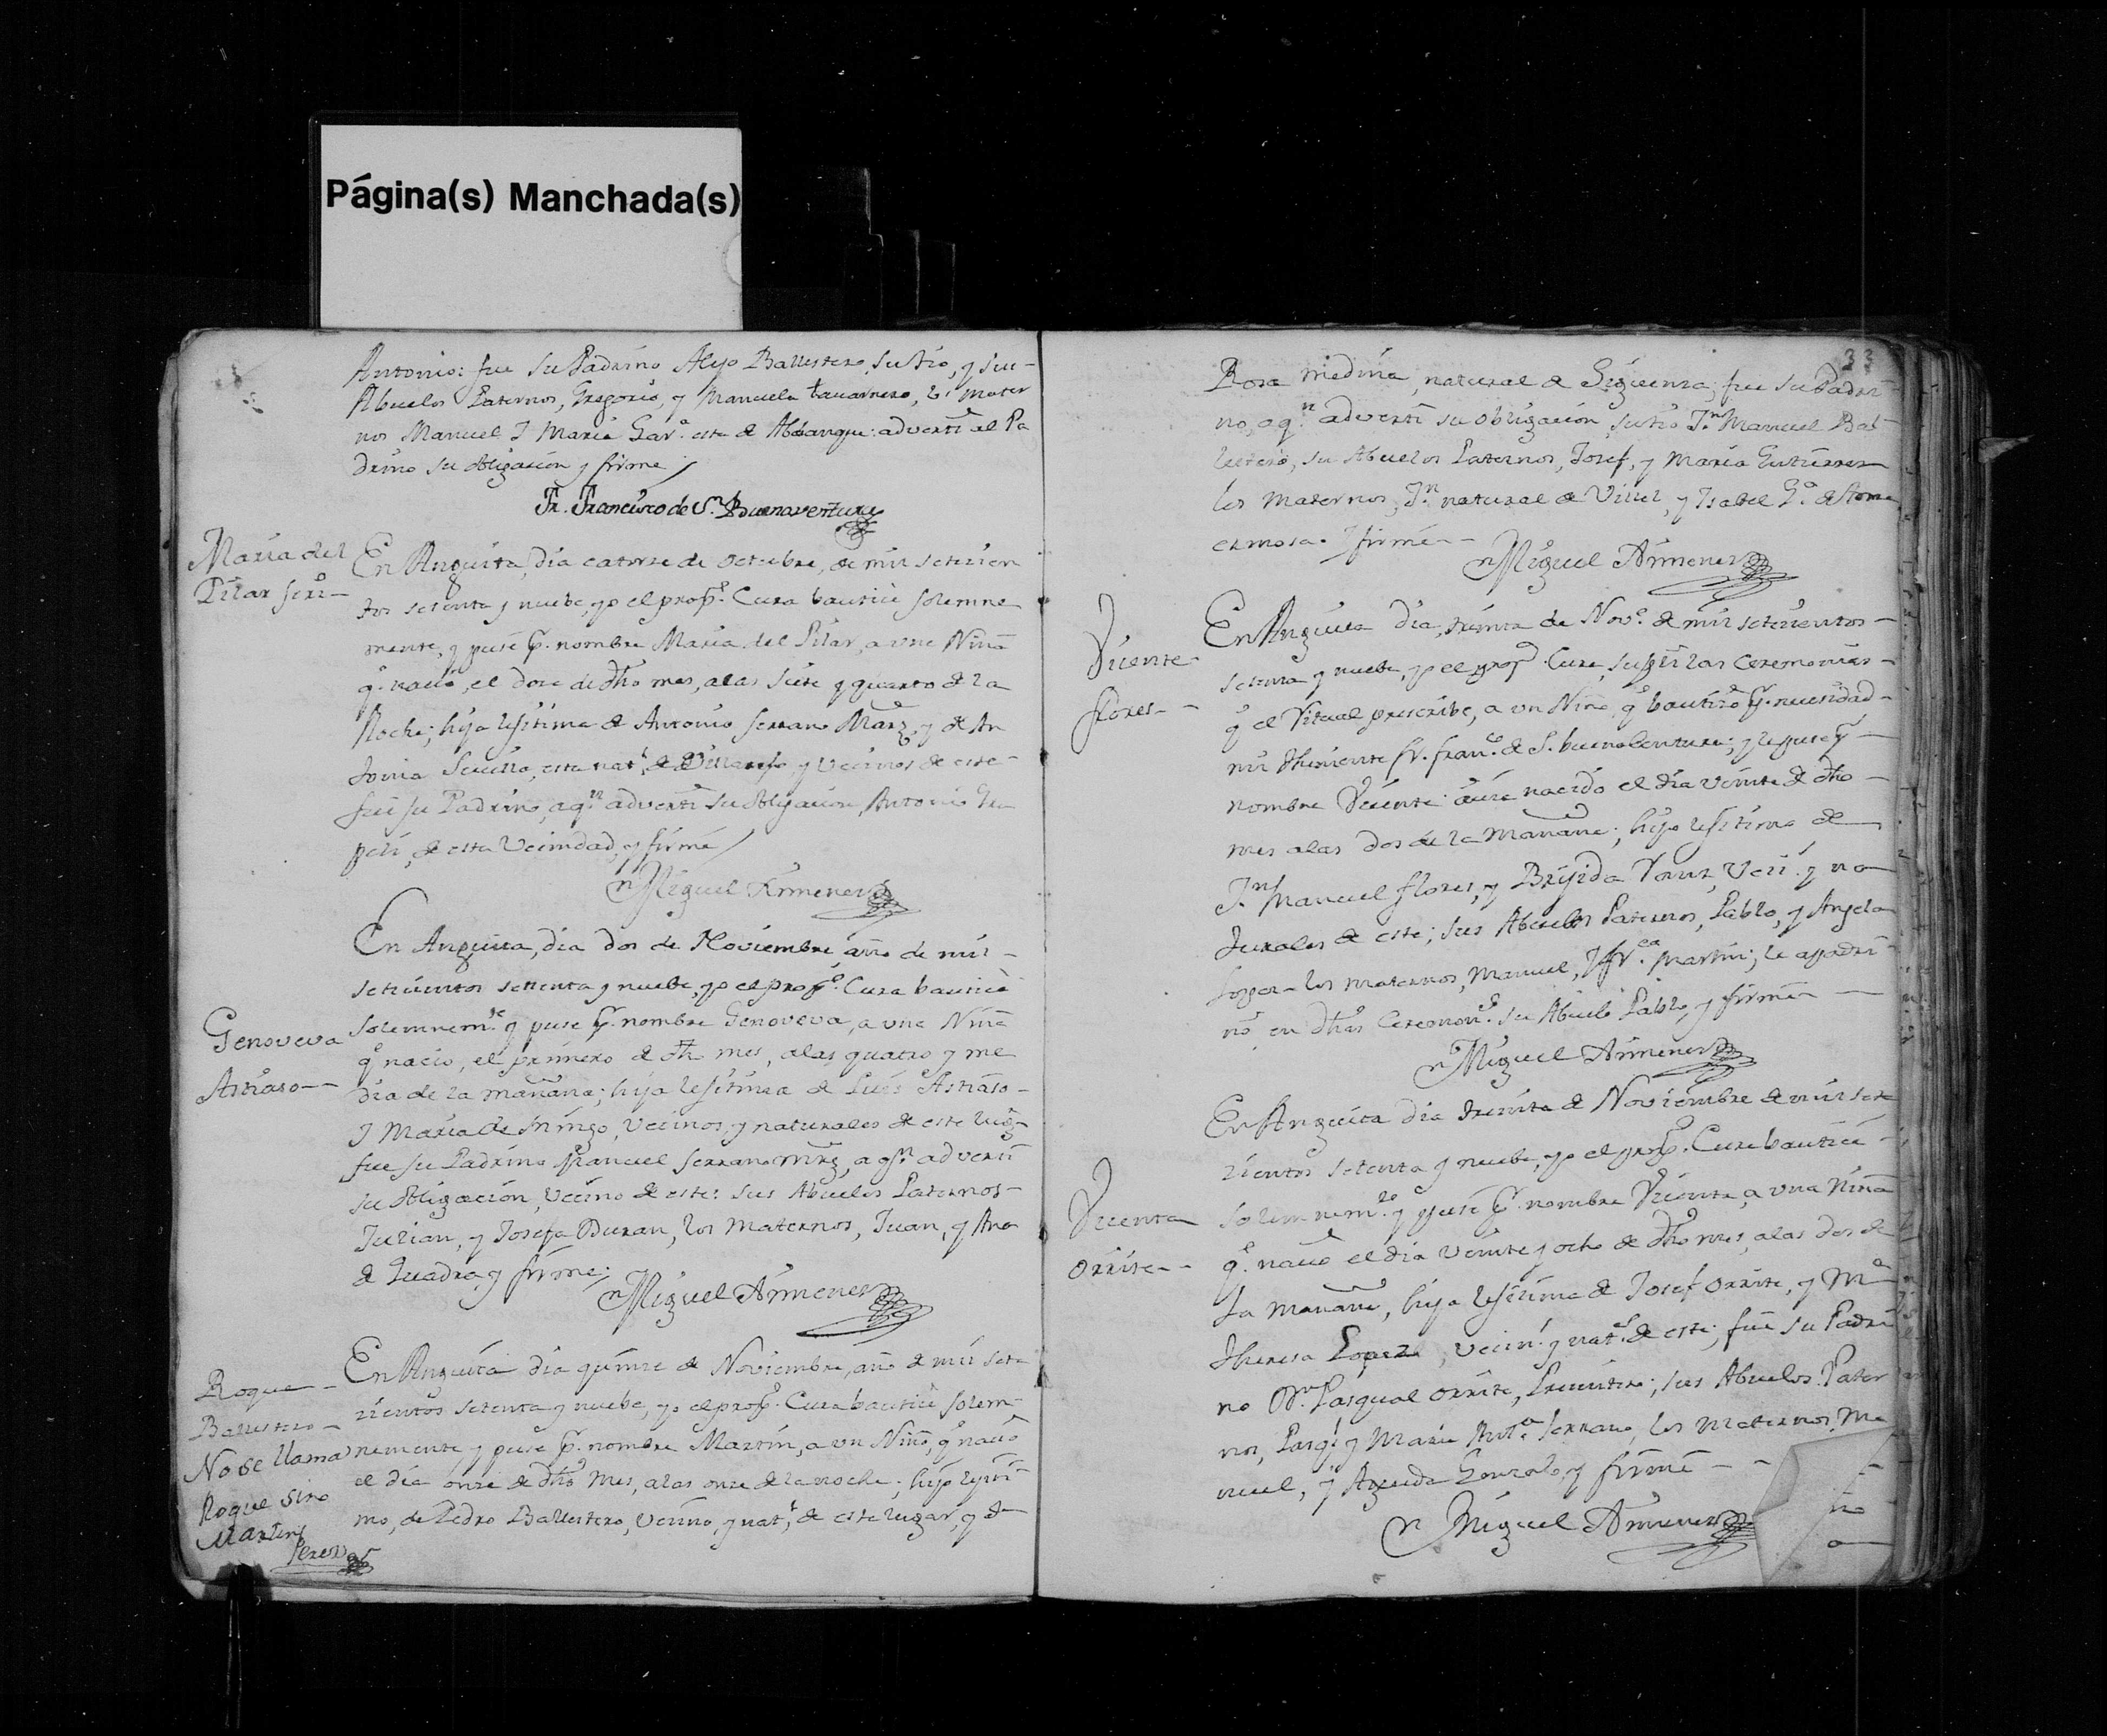 Página(s) Manchada(s)
Antonio: fue su Padrino Alejo Ballestero, su tio, y sus
Abuelos Paternos, Gregorio, y Manuela tauarnero, ls mater
nos Manuel, I Maria Gar.ª esta de Abdanque: advertí al Pa
drino su obligacion y firme
Fr. Francisco de Sn. Buenaventura
Maria del
Pilar serr.o
En Anguita, dia catorze de Octubre, de mil setezien
tos setenta y nuebe, yo el prop.º Cura bautice solemne
mente, y puse p. nombre Maria del Pilar, a una Niña
q.e nacio, el doze de dho mes, a las siete y quarto de la
Noche; hija lejitima de Antonio serrano Marz, y de An
tonia, esta nat.l de, y vecinos de este
fue su Padrino, a q.n advertí su obligacion, Antonio
de esta vecindad, y firmé
Miguel Armener
Genoveva
Astiaso
En Anguita, dia dos de Noviembre, año de mil
setecientos settenta y nuebe, yo el prop.º Cura bauticè
solemnem.te y puse p. nombre Genoveva, a una Niña
q.e nacio, el primero de dho mes, a las quatro y me
dia de la mañana; hija lejitima de Luis Astiaso
I Maria de Iñigo, vecinos, y naturales de este lug.r
fue su Padrino Manuel serrano mrz, a q.n advertí
su obligacion, vecino de este: sus Abuelos Paternos
Julian, y Josefa Duran, los maternos, Juan, y Ana
de Quadra, y firme;
Miguel Armener
Roque
Ballestero
No se llama
Roque sino
Martin
Perez
En Anguita dia quinze de Noviembre, año de mil sete
zientos setenta y nuebe, yo el prop.º Cura bautice solem
nemente, y puse p. nombre Martin, a un Niño, q.e nacio
el dia onze de dho mes, a las onze de la noche; hijo lejiti
mo, de Pedro Ballestero, vecino, y nat.l de este lugar, y de
33
Rosa medina, natural de Siguenza; fue su Padri
no, a q.n advertí su obligacion, su tio J.n Manuel Bal
lestero, su Abuelos Paternos, Josef, y Maria Gutierrez
los maternos, J.n natural de Villel, y Isabel G.ª de Torre
ermosa. I firmé
Miguel Armener
Vicente
flores
En Anguita dia, treinta de Nov.e de mil setecientos
setenta y nuebe, yo el prop.º Cura, suplí las ceremonias
q.e el Ritual prescribe, a un Niño, q.e bautizó p. necesidad
mi theniente fr. fran.co de S. buenabentura; y le puse p.
nombre Vicente: avia nacido el dia veinte de dho
mes a las dos de la mañana; hijo lejitimo de
J.n Manuel flores, y Brijida, veci.s y na
turales de este; sus Abuelos Paternos, Pablo, y Angela
Lopez los maternos, Manuel, I fr.ca Martin; le apadri
nó en dhas ceremon.s su Abuelo Pablo, y firmé
Miguel Armener
Vicenta
Orrite
En Anguita dia treinta de Noviembre de mil sete
zientos setenta y nuebe, yo el prop.º Cura bautice
solemnem.te y puse p. nombre Vicenta, a una Niña
q.e nacio el dia veinte y ocho de dho mes, a las dos de
la mañana, hija lejitima de Josef Orrite, y M.ª
theresa Lopez, vecin.s y nat.s de este; fue su Padri
no D.n Pasqual Orrite, Presvitero; sus Abuelos Pater
nos, Pasq.l y Maria Ant.ª serrano, los Maternos, Ma
nuel, y Agueda Gonzalo, y firmé
Miguel Armener